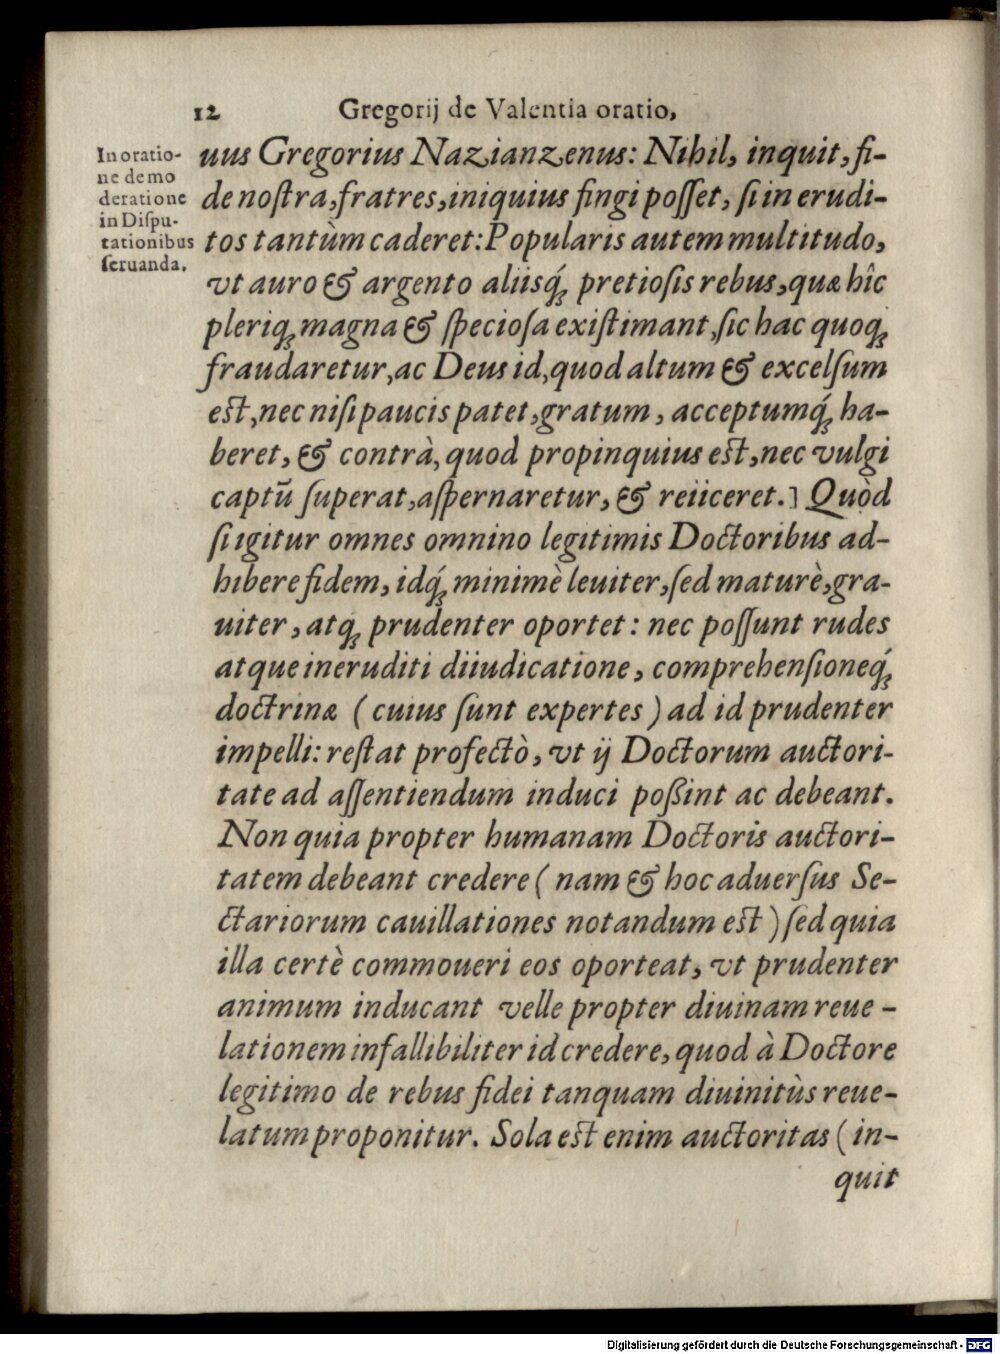 12 Gregorij de Valentia oratio,
In oratio-
ne de mo
deratione
in Dispu-
tationibus
seruanda.
uus Gregorius Nazianzenus: Nihil, inquit, fi-
de nostra, fratres, iniquius fingi posset, si in erudi-
tos tantùm caderet: Popularis autem multitudo,
vt auro & argento aliisq́; pretiosis rebus, quæ hîc
pleriq; magna & speciosa existimant, sic hac quoq;
fraudaretur, ac Deus id, quod altum & excelsum
est, nec nisi paucis patet, gratum, acceptumq́; ha-
beret, & contrà, quod propinquius est, nec vulgi
captũ superat, aspernaretur, & reiiceret.] Quòd
si igitur omnes omnino legitimis Doctoribus ad-
hibere fidem, idq́; minimè leuiter, sed maturè, gra-
uiter, atq; prudenter oportet: nec possunt rudes
atque ineruditi diiudicatione, comprehensioneq́;
doctrinæ (cuius sunt expertes) ad id prudenter
impelli: restat profectò, vt ij Doctorum auctori-
tate ad assentiendum induci poßint ac debeant.
Non quia propter humanam Doctoris auctori-
tatem debeant credere (nam & hoc aduersus Se-
ctariorum cauillationes notandum est) sed quia
illa certè commoueri eos oporteat, vt prudenter
animum inducant velle propter diuinam reue-
lationem infallibiliter id credere, quod à Doctore
legitimo de rebus fidei tanquam diuinitùs reue-
latum proponitur. Sola est enim auctoritas (in-
quit
Digitalisierung gefördert durch die Deutsche Forschungsgemeinschaft - DFG